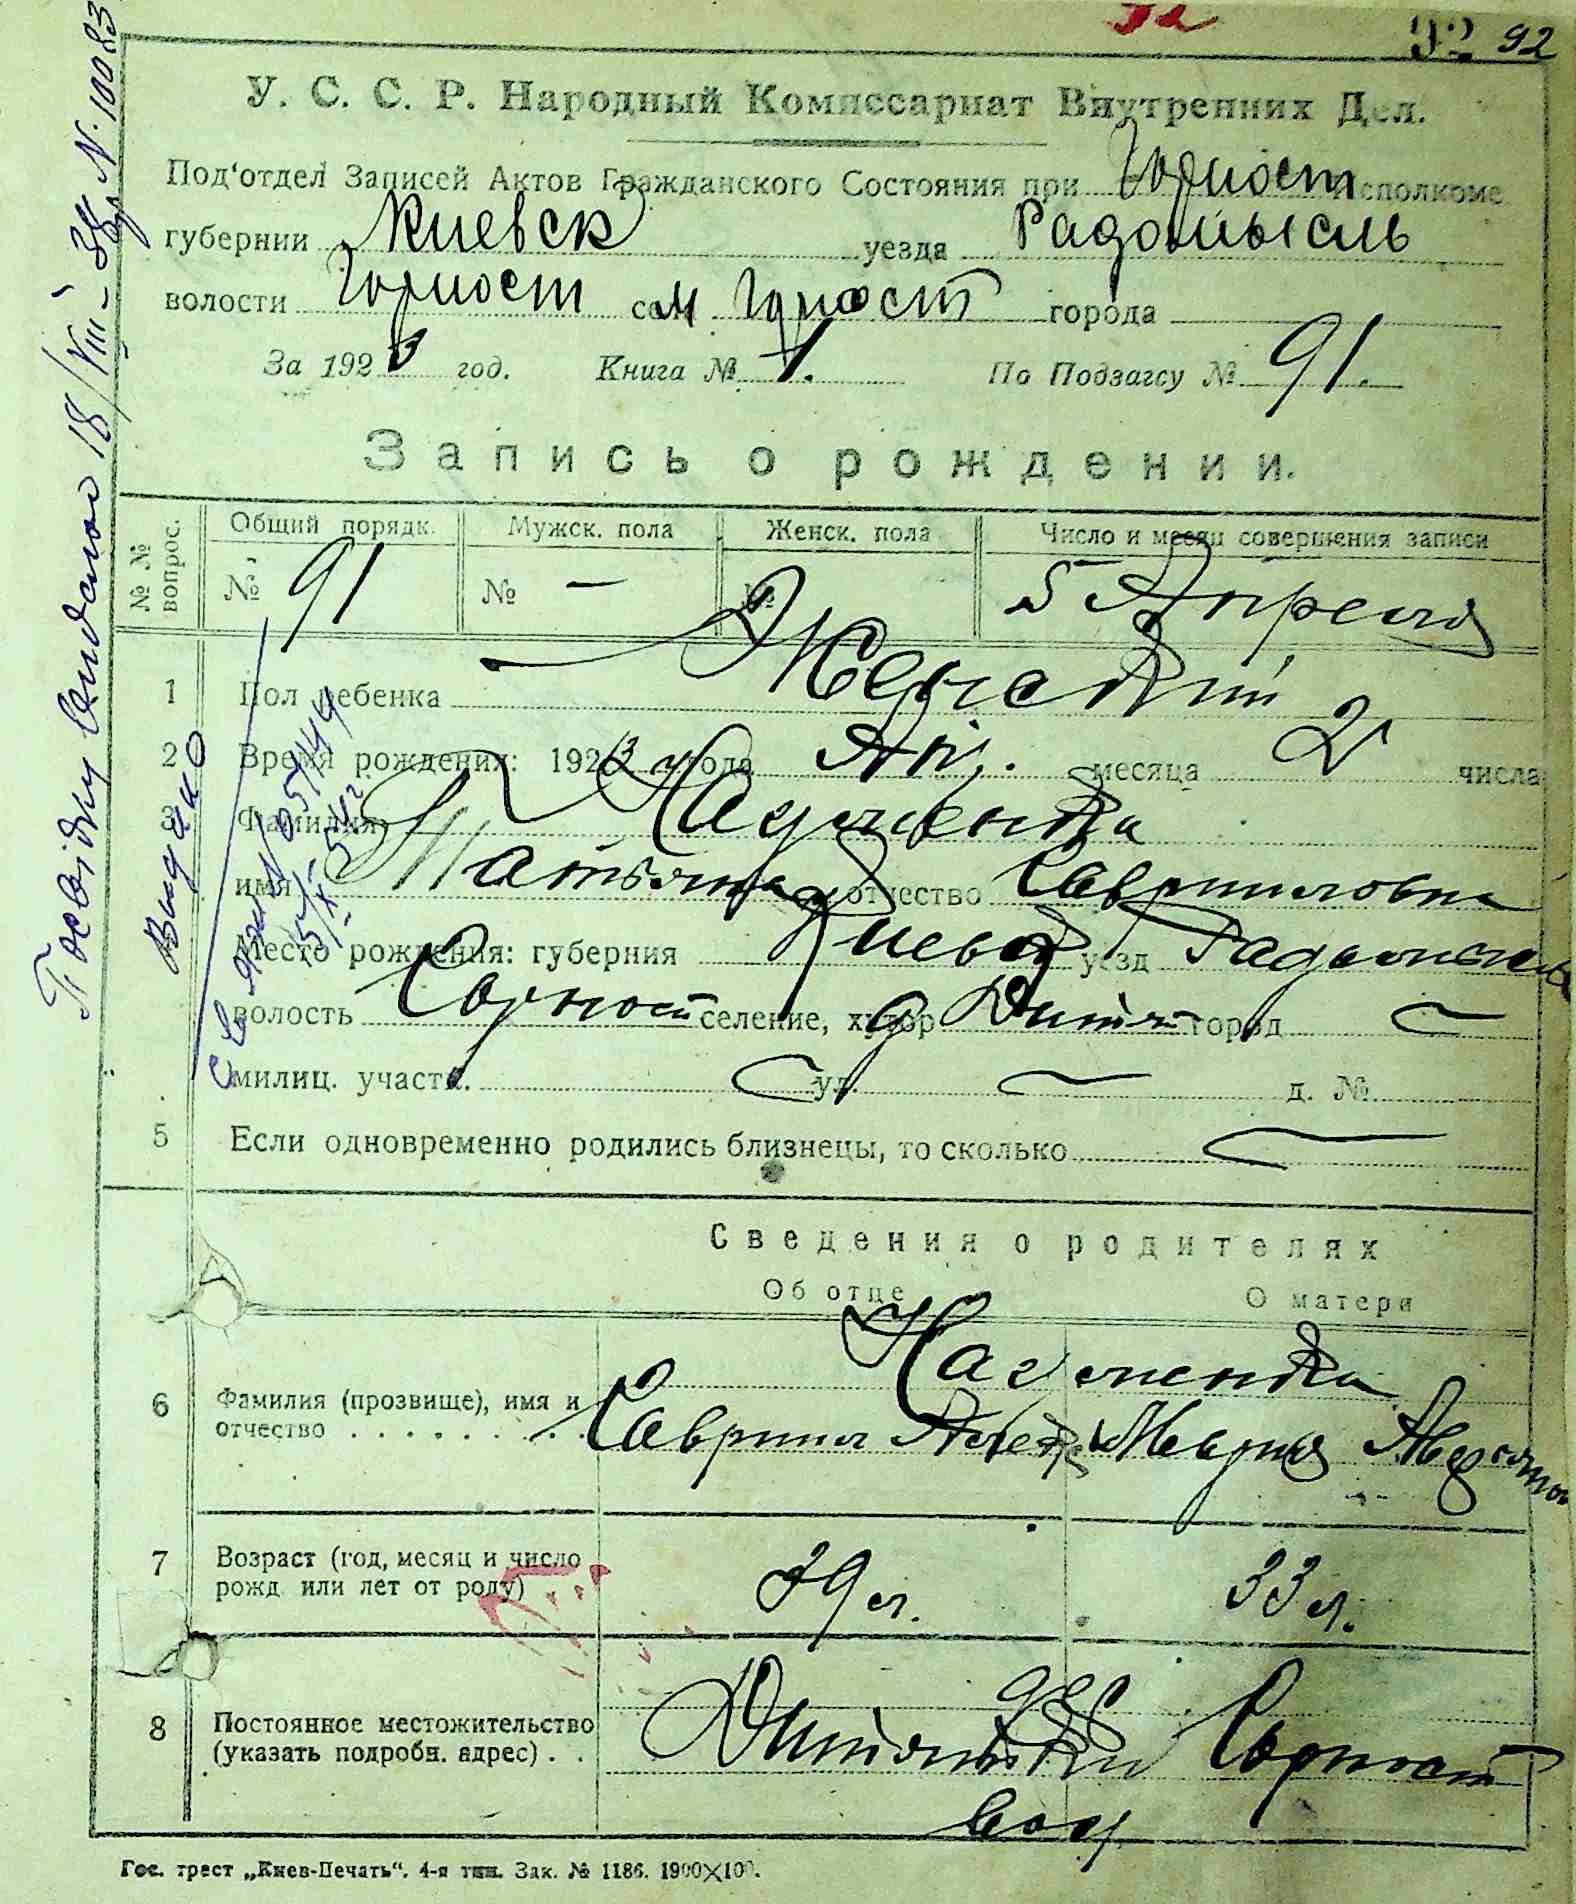 92 92
У. С. С. Р. Народный Комиссариат Внутренних Дел.
Под'отдел Записей Актов Гражданского Состояния при Горност исполкоме
губернии Киевск уезда Радомысль
волости Горност м. Горност города
За 1923 год. Книга № 1. По Подзагсу № 91.
Запись о рождении.
№ № вопрос. Общий порядк. Мужск. пола Женск. пола Число и месяц совершения записи
№ 91 № — № 5 Апреля
1 Пол ребенка Женский
2 Время рождения: 1923 года Ап. месяца 2 числа
3 Фамилия Науменко
имя Татьяна отчество Гавриловна
Место рождения: губерния Киевск уезд Радомысль
волость Горност селение, хутор д Дитят город —
милиц. участк. — ул. — д. №
5 Если одновременно родились близнецы, то сколько —
Сведения о родителях
Об отце О матери
Науменко
6 Фамилия (прозвище), имя и
отчество Гаврил Алек. Мария
7 Возраст (год, месяц и число
рожд. или лет от роду) 39 л. 33 л.
8 Постоянное местожительство
(указать подробн. адрес) Горност
вол
Гос. трест „Киев-Печать“. 4-я тип. Зак. № 1186.
Посвідку 18/VIII-38р N. 10083
Видано